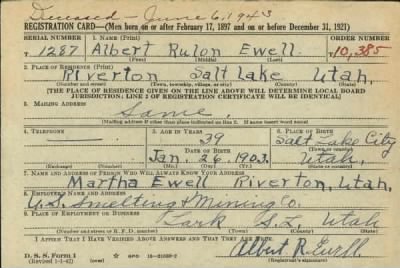 Deceased - June 6, 1943
REGISTRATION CARD—(Men born on or after February 17, 1897 and on or before December 31, 1921)
SERIAL NUMBER 1. NAME (Print) ORDER NUMBER
T 1287 Albert Rulon Ewell 10,385
(First) (Middle) (Last)
2. PLACE OF RESIDENCE (Print)
Riverton Salt Lake Utah,
(Number and street) (Town, township, village, or city) (County) (State)
[THE PLACE OF RESIDENCE GIVEN ON THE LINE ABOVE WILL DETERMINE LOCAL BOARD
JURISDICTION; LINE 2 OF REGISTRATION CERTIFICATE WILL BE IDENTICAL]
3. MAILING ADDRESS
Same.
[Mailing address if other than place indicated on line 2. If same insert word same]
4. TELEPHONE 5. AGE IN YEARS 6. PLACE OF BIRTH
39 Salt Lake City
DATE OF BIRTH (Town or county)
Jan. 26, 1903. Utah,
(Exchange) (Number) (Mo.) (Day) (Yr.) (State or country)
7. NAME AND ADDRESS OF PERSON WHO WILL ALWAYS KNOW YOUR ADDRESS
Martha Ewell Riverton, Utah,
8. EMPLOYER'S NAME AND ADDRESS
U.S. Smelting & Mining Co.
9. PLACE OF EMPLOYMENT OR BUSINESS
Lark S.L. Utah
(Number and street or R. F. D. number) (Town) (County) (State)
I AFFIRM THAT I HAVE VERIFIED ABOVE ANSWERS AND THAT THEY ARE TRUE.
D. S. S. Form 1
(Revised 1-1-42) (over) GPO 16-21630-2
Albert R. Ewell.